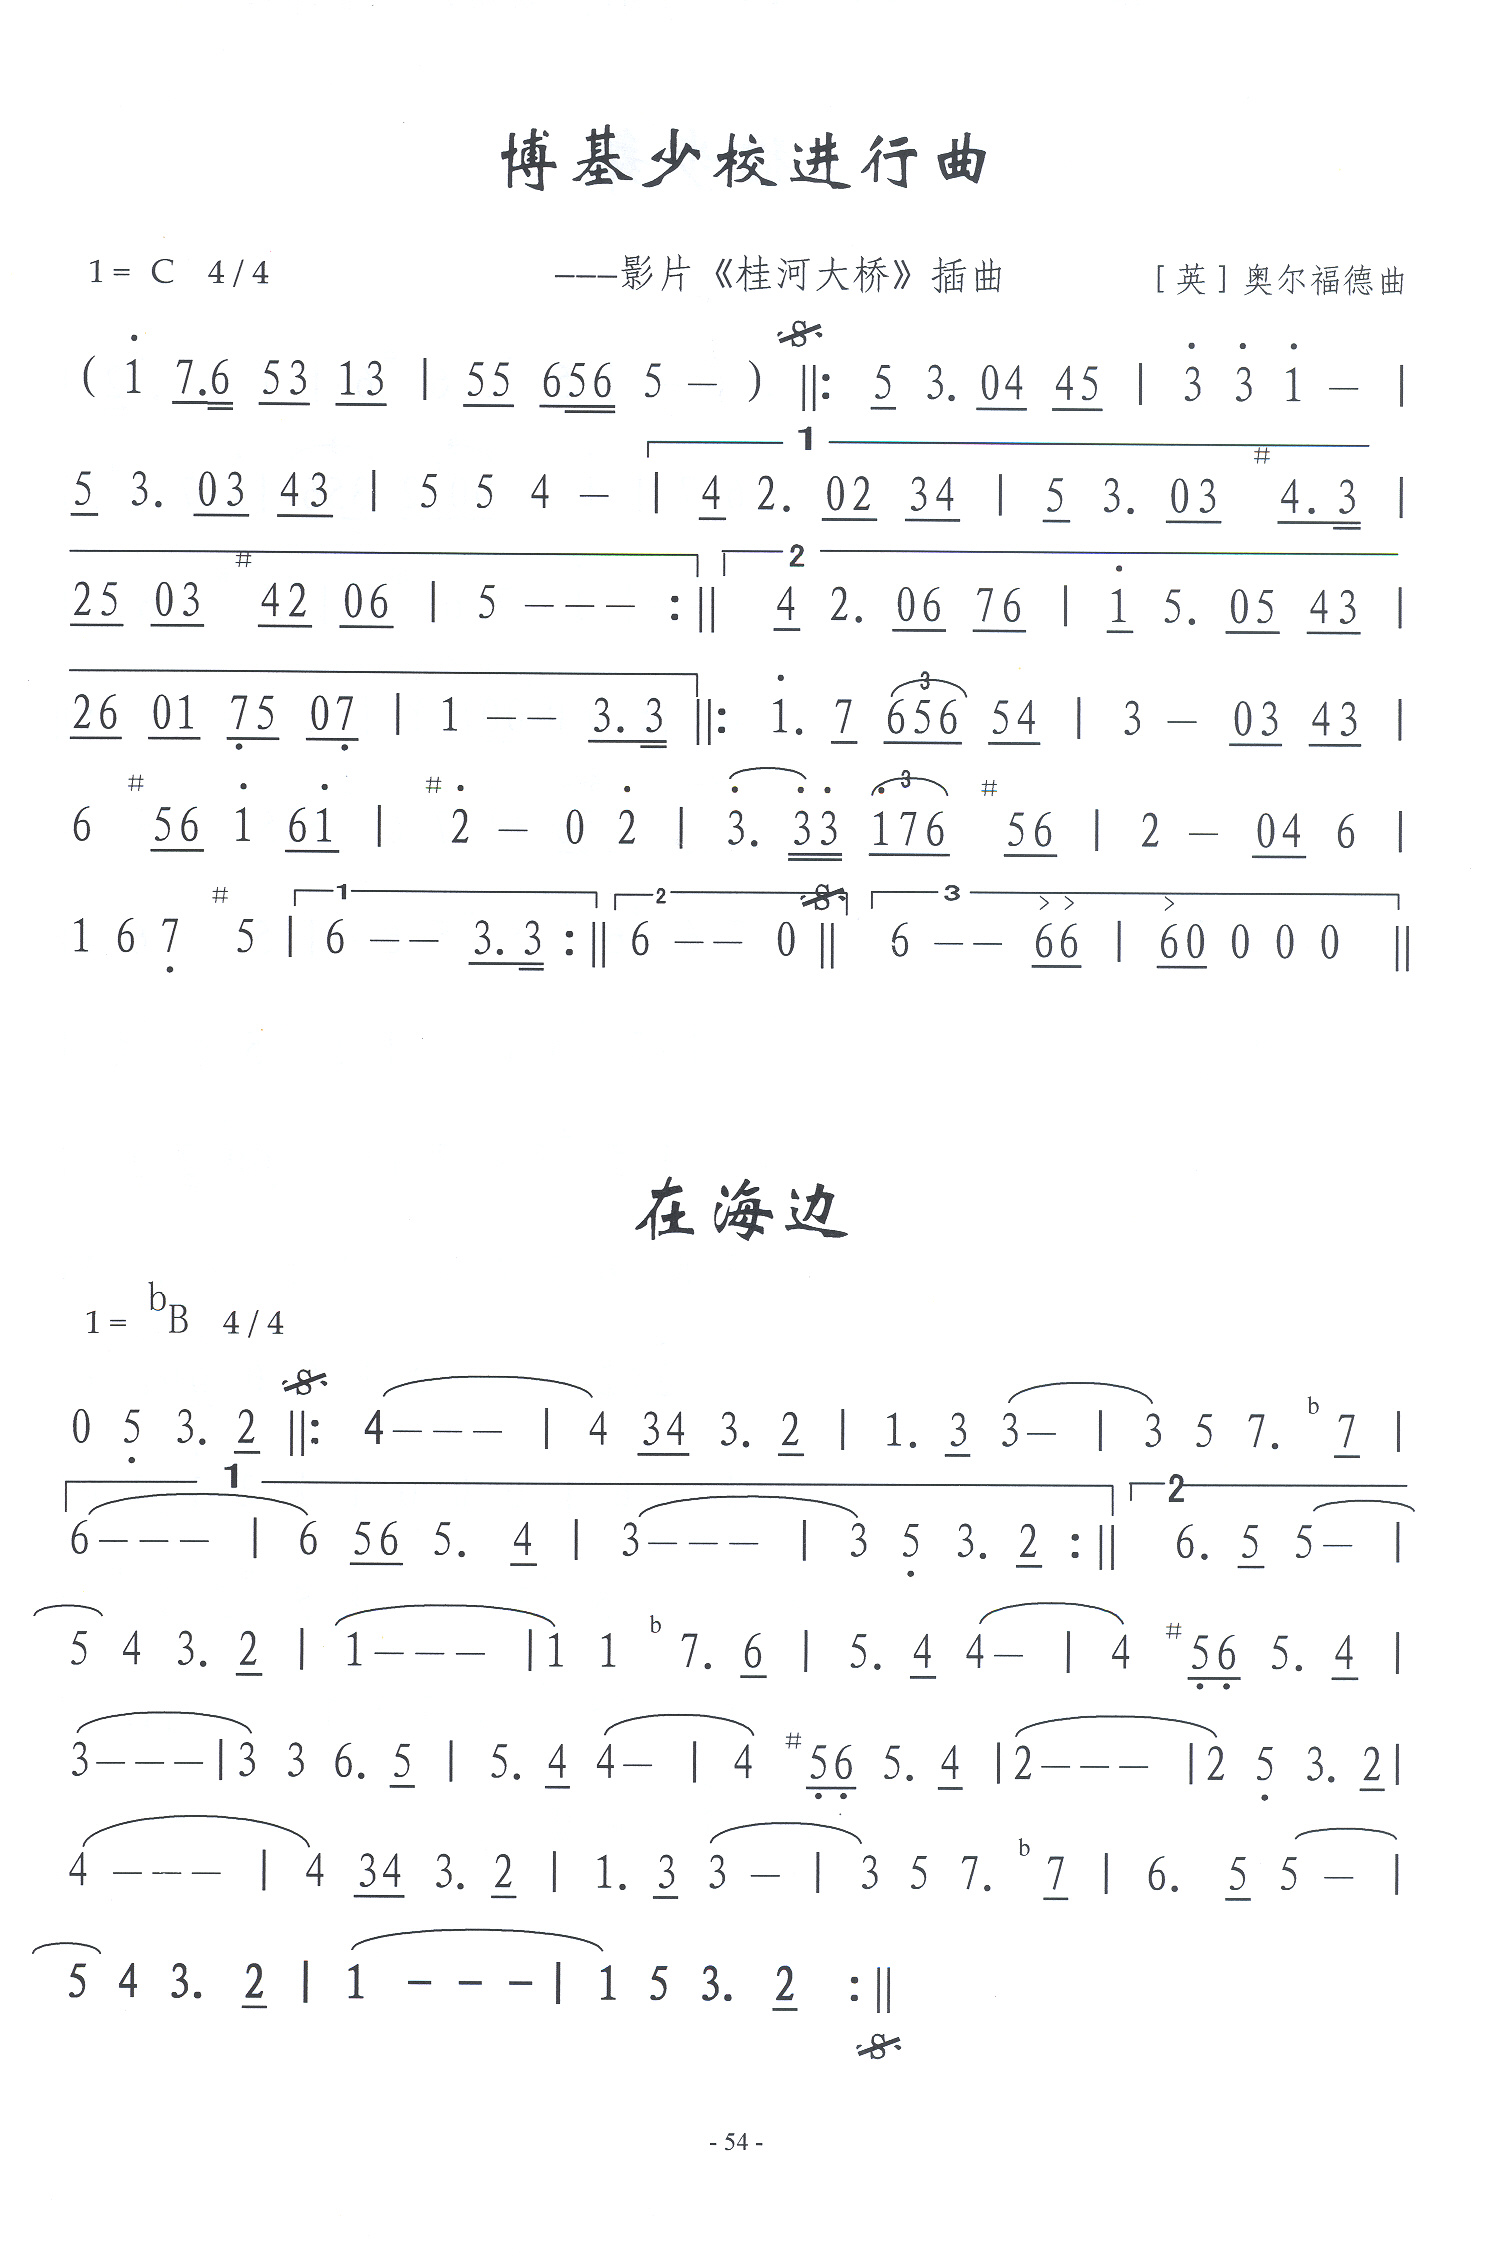 博基少校进行曲
1= C 4/4 ---影片《桂河大桥》插曲 [英]奥尔福德曲
( 1̇ 7.6 53 13 | 55 656 5 — ) ||: 5 3. 04 45 | 3̇ 3̇ 1̇ — |
1
5 3. 03 43 | 5 5 4 — | 4 2. 02 34 | 5 3. 03 #4.3 |
2
25 03 #42 06 | 5 — — — :|| 4 2. 06 76 | 1̇ 5. 05 43 |
26 01 7̣5 07̣ | 1 — — 3.3 ||: 1̇. 7 656 54 | 3 — 03 43 |
6 #56 1̇ 61̇ | #2̇ — 0 2̇ | 3̇. 3̇3̇ 1̇76 #56 | 2 — 04 6 |
1 2 3
1 6 7̣ #5 | 6 — — 3.3 :|| 6 — — 0 || 6 — — 66 | 60 0 0 0 ||
在海边
1= bB 4/4
0 5̣ 3. 2 ||: 4 — — — | 4 34 3. 2 | 1. 3 3 — | 3 5 7. b7 |
1 2
6 — — — | 6 56 5. 4 | 3 — — — | 3 5̣ 3. 2 :|| 6. 5 5 — |
5 4 3. 2 | 1 — — — | 1 1 b7. 6 | 5. 4 4 — | 4 #5̣6̣ 5. 4 |
3 — — — | 3 3 6. 5 | 5. 4 4 — | 4 #5̣6̣ 5. 4 | 2 — — — | 2 5̣ 3. 2 |
4 — — — | 4 34 3. 2 | 1. 3 3 — | 3 5 7. b7 | 6. 5 5 — |
5 4 3. 2 | 1 — — — | 1 5 3. 2 :||
- 54 -